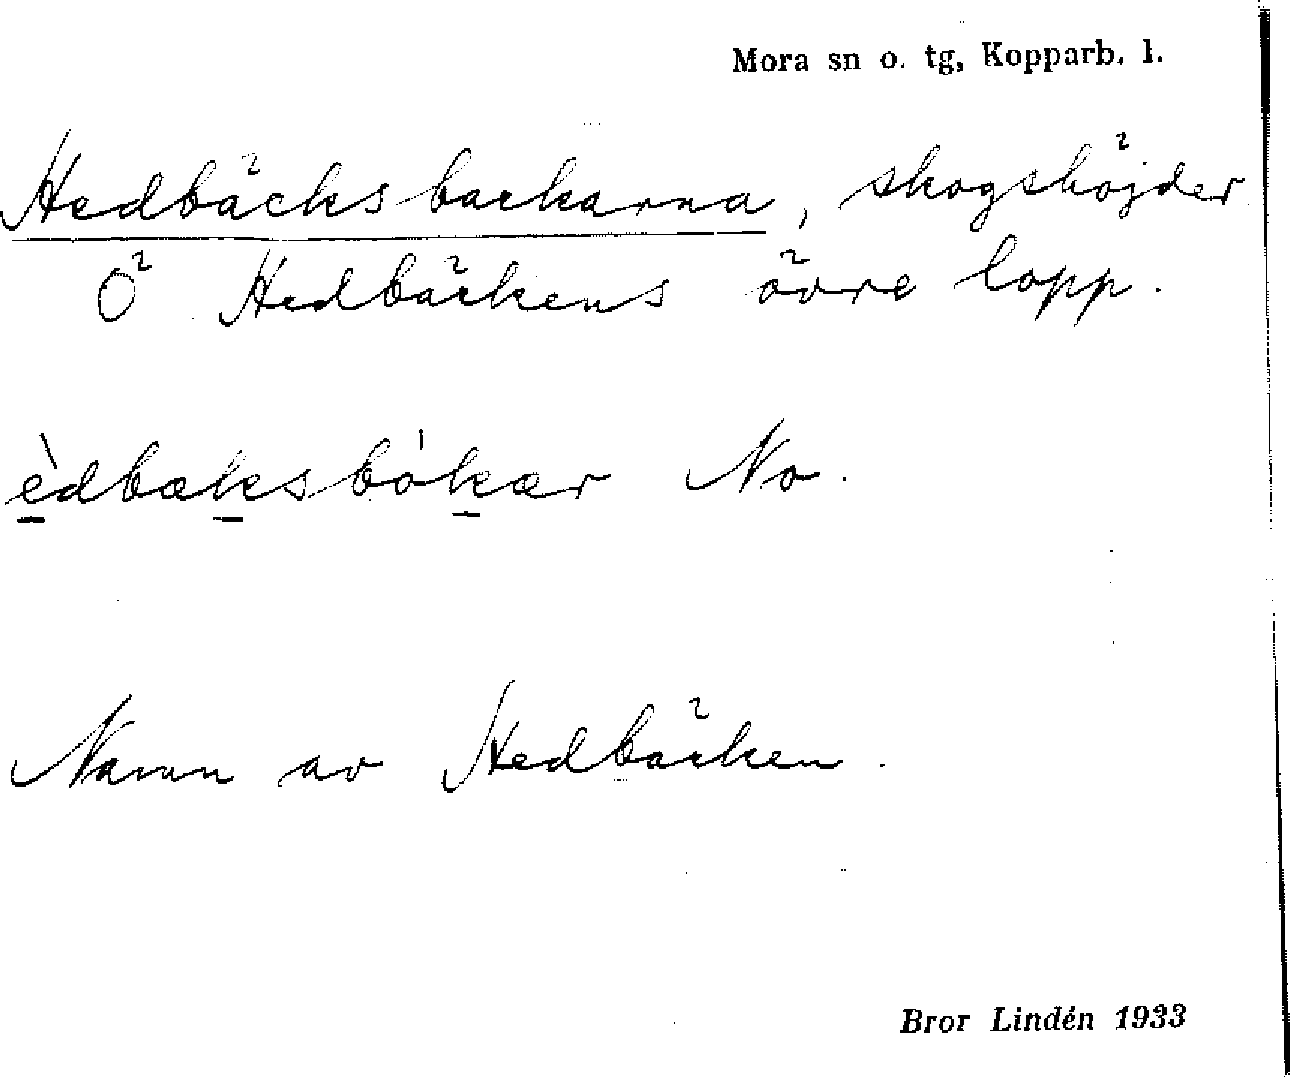 Mora sn o. tg, Kopparb. l.
Hedbäcksbackarna, skogshöjder
Ö Hedbäckens övre lopp.
èdbæksbókær No.
Namn av Hedbäcken.
Bror Lindén 1933